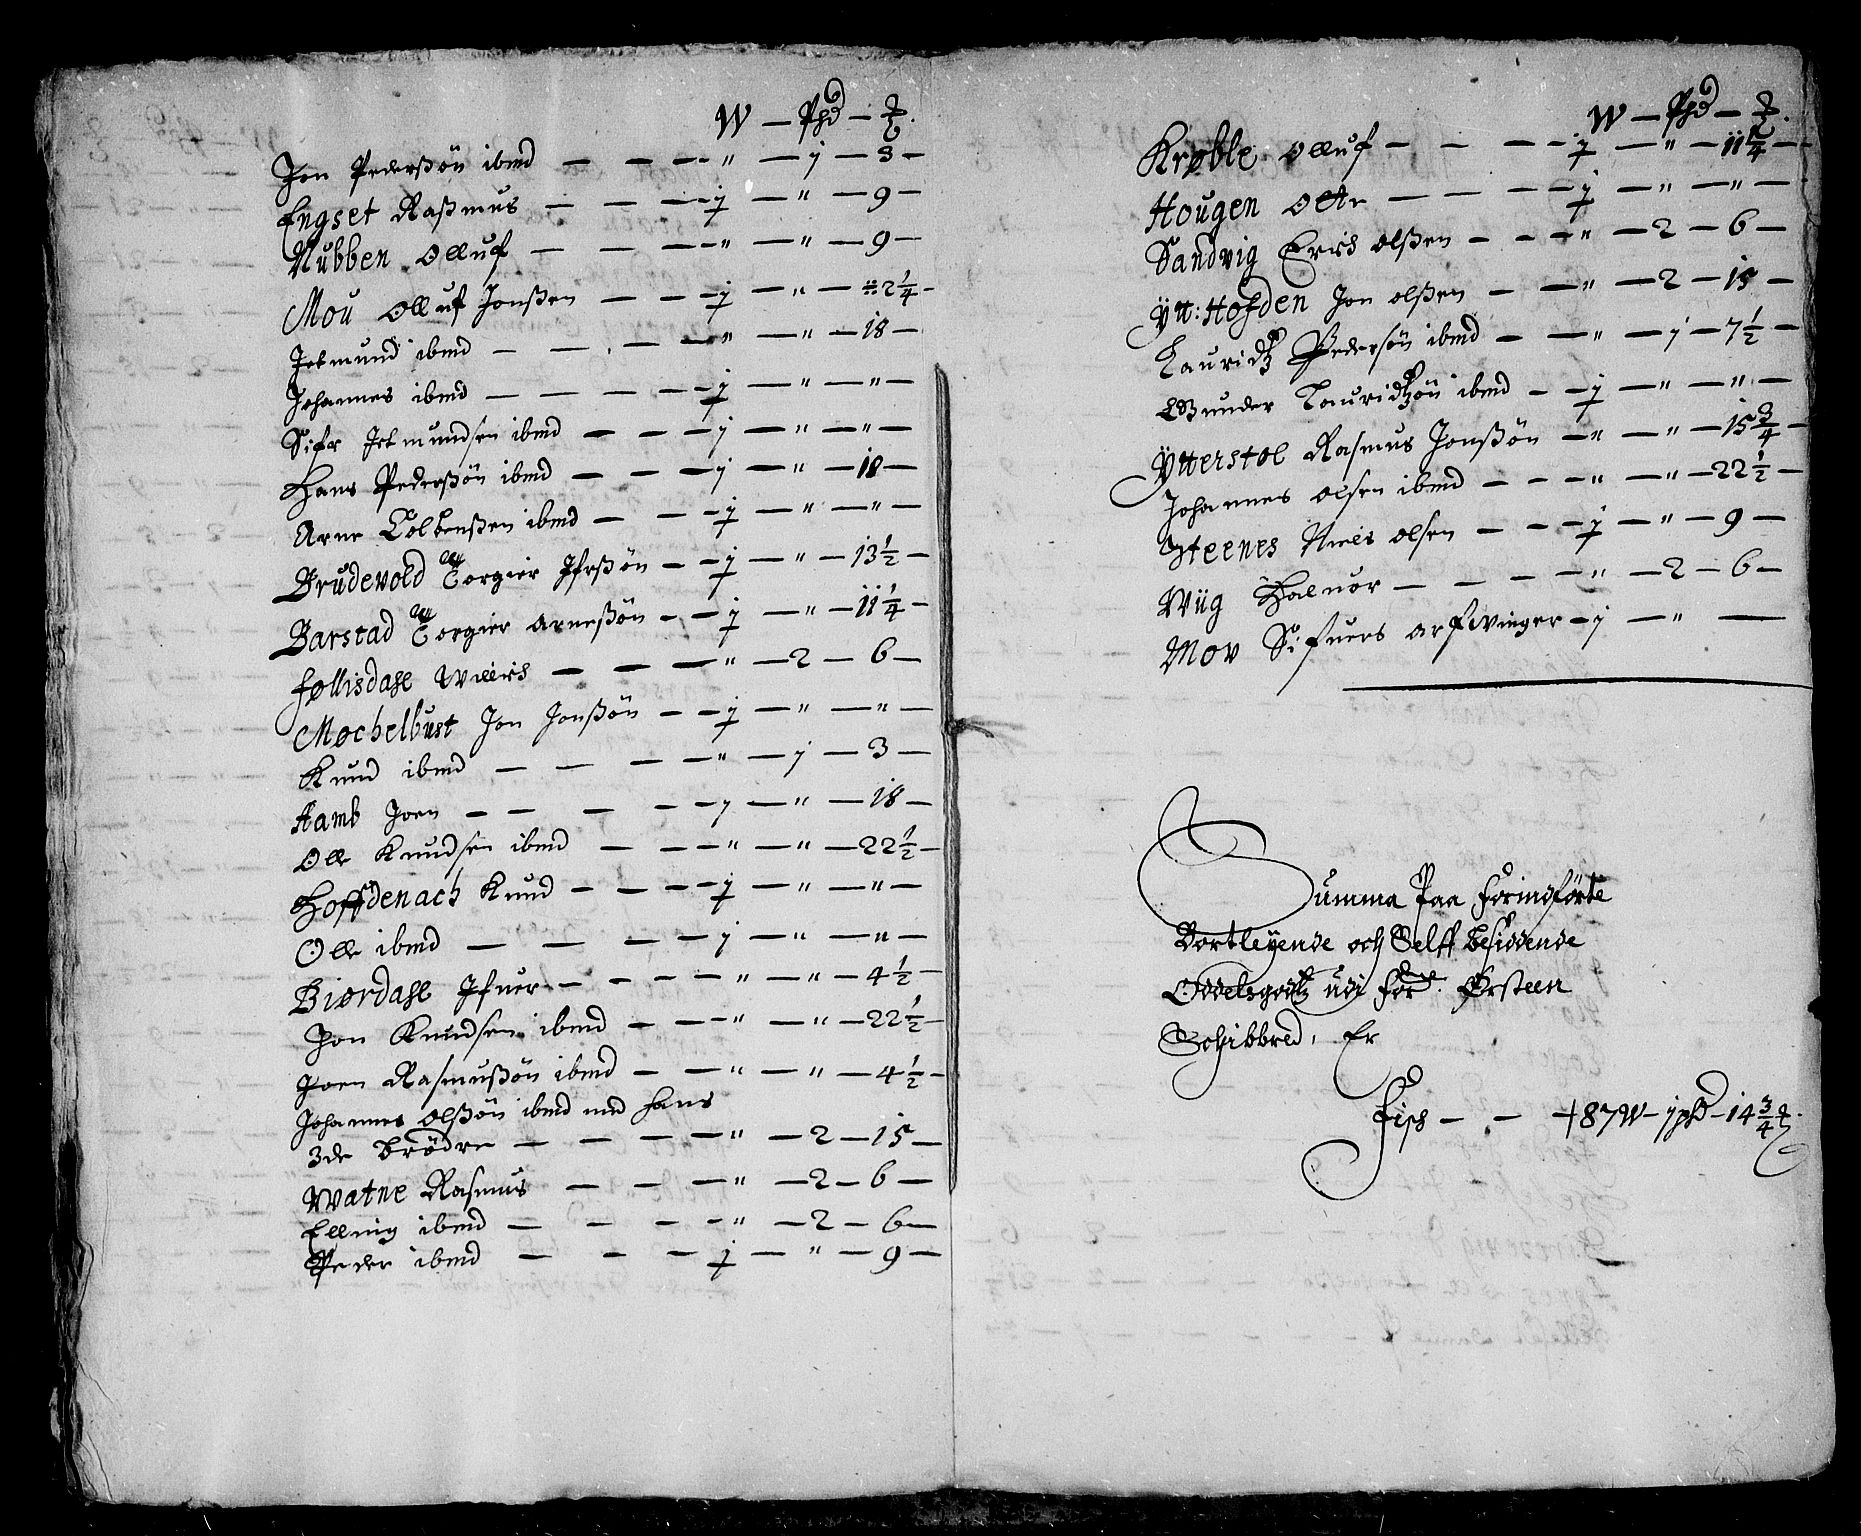 W — Phd — ℔.
Jon Pederßøn ibmd — — — „ — j — 3 —
Engset Raßmus — — — j — „ — 9 —
Nubben Olluf — — — „ — „ — 9 —
Mou Olluf Jonßen — — — j — „ — 2¼ —
Jetmund ibmd — — — „ — „ — 18 —
Johannes ibmd — — — j — „ — „ —
Sifr Jetmundsen ibmd — — — j — „ — „ —
Hans Pederßøn ibmd — — — j — „ — 18 —
Arne Colbenßen ibmd — — j — „ — „ —
Brudevold Torgier Ifrßøn — — j — „ — 13½ —
Barstad Torgier Arneßøn — — j — „ — 11¼ —
Føllisdahl Willich — — — „ — 2 — 6 —
Møchelbust Jon Jonßøn — — j — „ — „ —
Knud ibmd — — — „ — j — 3 —
Aamb Joen — — — — j — „ — 18 —
Olle Knudsen ibmd — — — „ — „ — 22½ —
Hoffdenach Knud — — — — j — „ — „ —
Olle ibmd — — — — j — „ — „ —
Biørdahl Ifuer — — — — „ — „ — 4½ —
Jon Knudsen ibmd — — — „ — „ — 22½ —
Joen Rasmußøn ibmd — — „ — „ — 4½ —
Johannes Olßøn ibmd med hans
3de brødre — — — — „ — 2 — 15 —
Watne Rasmus — — — „ — 2 — 6 —
Elling ibmd — — — — „ — 2 — 6 —
Peder ibmd — — — j — „ — 9 —
W — Phd — ℔.
Krøble Olluf — — — j — „ — 11¼ —
Hougen Olle — — — j — „ — „ —
Sandvig Erich Olßen — — — „ — 2 — 6 —
Ytt: Hofden Jon Olßen — — „ — 2 — 15 —
Lauridtz Pedersøn ibmd — — „ — j — 7½ —
Gunder Lauridtzøn ibmd — — j — „ — „ —
Ytterstol Rasmus Jonßøn — „ — „ — 15¾ —
Johannes Olsen ibmd — — — „ — „ — 22½ —
Steenes Niels Olsen — — — j — „ — 9 —
Wiig Haluor — — — — „ — 2 — 6 —
Mov Sifuers arfwinger — j — „ —
Summa Paa foringførte
Bortleyende och Selff besiddende
Oddelsgodtz udi forde: Ørsteen
Schibbred, Er
Fisch — — — 87 W — j phd — 14¾ ℔.